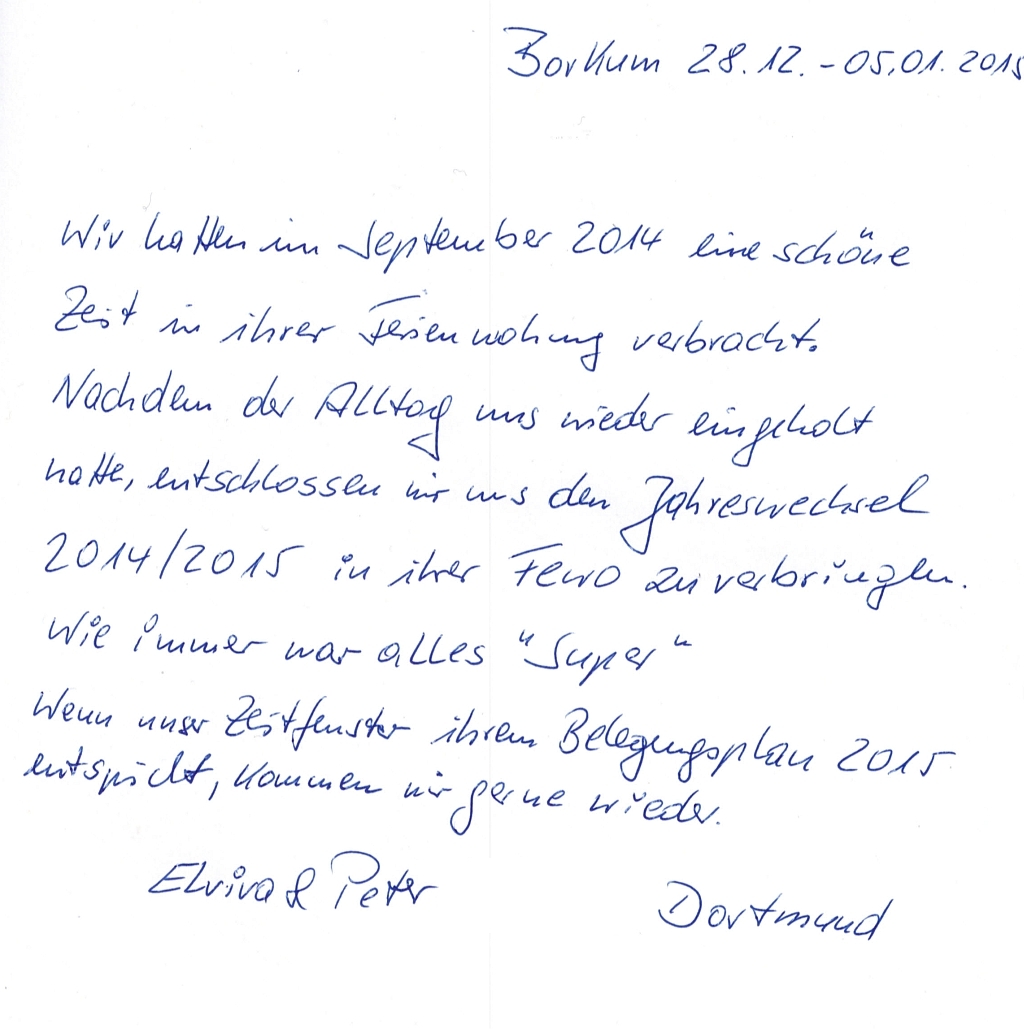 Borkum 28.12. - 05.01.2015
Wir hatten im September 2014 eine schöne
Zeit in ihrer Ferienwohung verbracht.
Nachdem der Alltag uns wieder eingeholt
hatte, entschlossen wir uns den Jahreswechsel
2014/2015 in ihrer Fewo zu verbringen.
Wie immer war alles "Super"
Wenn unser Zeitfenster ihrem Belegungsplan 2015
entspicht, kommen wir gerne wieder.
Elvira & Peter
Dortmund